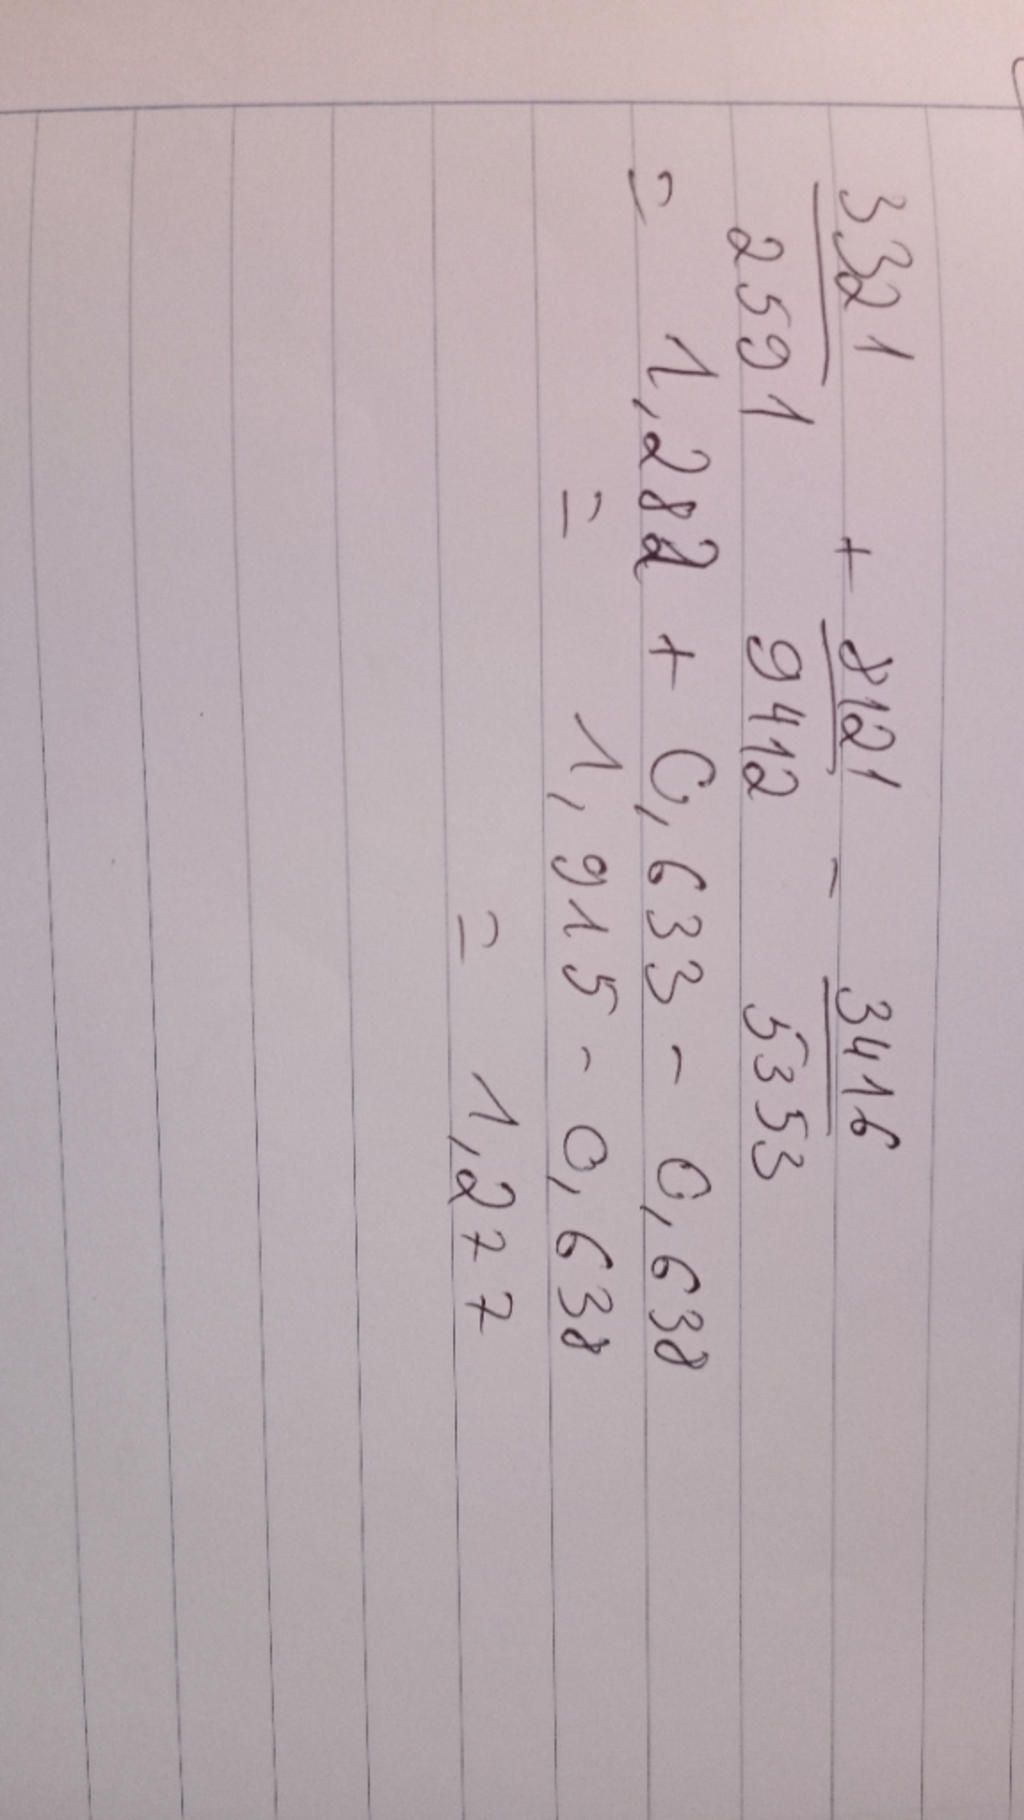 3321 + 8121 - 3416
2591 9412 5353
= 1,282 + 0,633 - 0,638
= 1,915 - 0,638
= 1,277